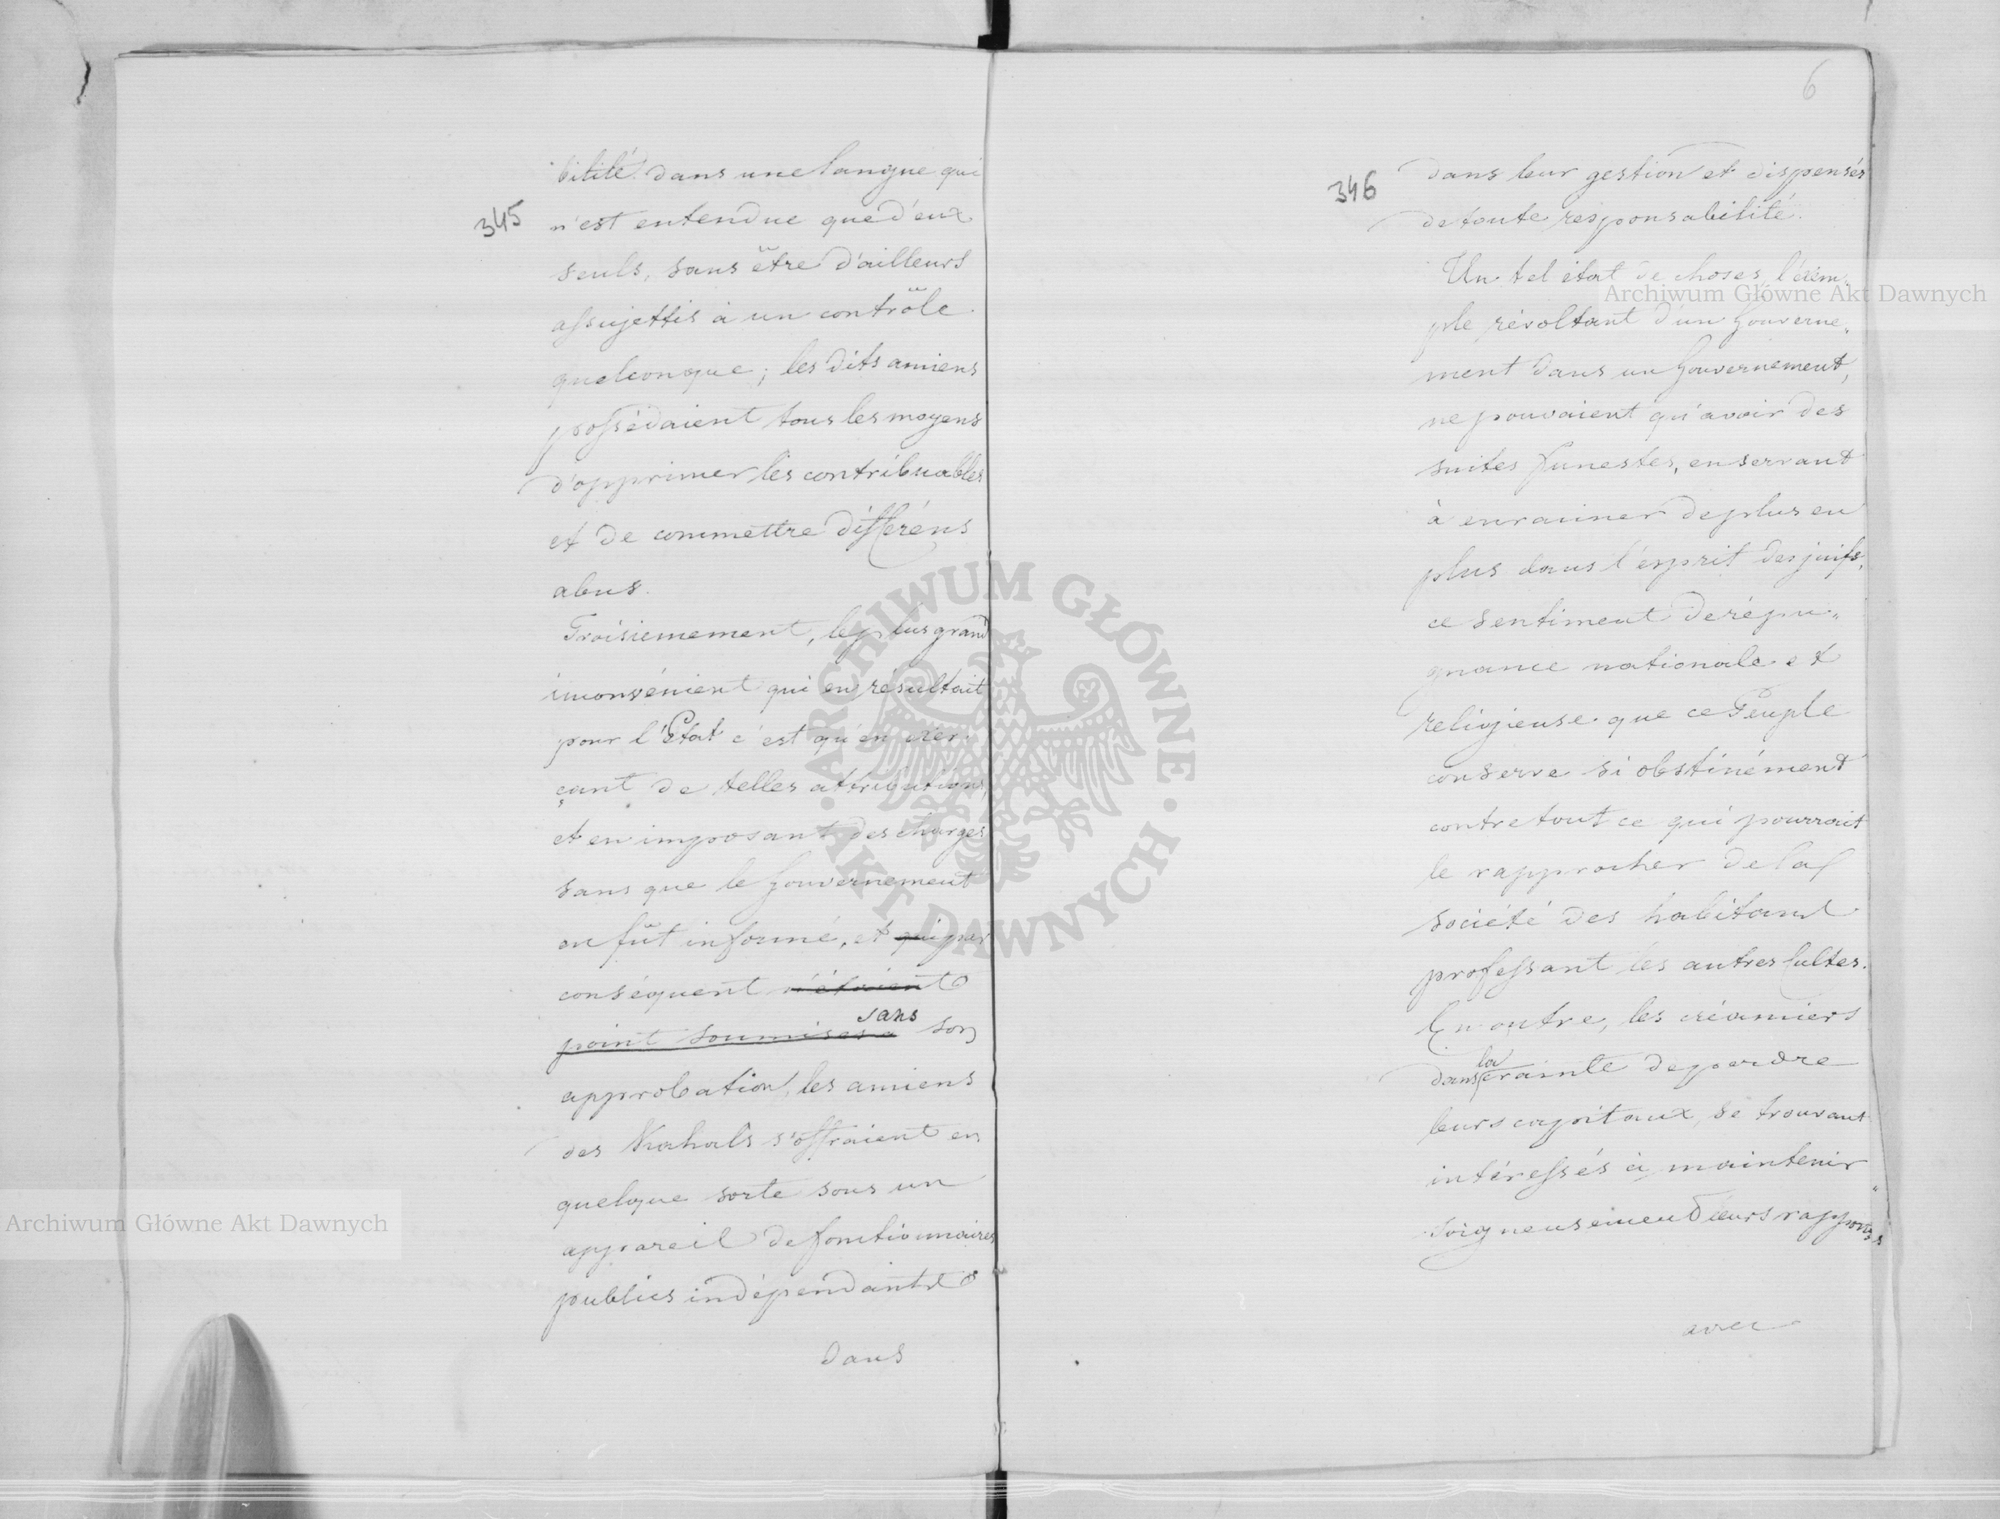 345
bilité dans une langue qui
n'est entendue que d'eux
seuls, sans être d'ailleurs
assujettis à un contrôle
quelconque; les dits anciens
possédaient tous les moyens
d'opprimer les contribuables
et de commettre différens
abus.
Troisiemement, le plus grand
inconvénient qui en résultait
pour l'Etat c'est qu'en exer-
çant de telles attributions,
et en imposant des charges
sans que le Gouvernement
en fût informé, et qui par
conséquent n'étaient
point soumises à sans son
approbation, les anciens
des Kahals s'offraient en
quelque sorte sous un
appareil de fonctionnaires
publics indépendants
dans
6
346
dans leur gestion et dispensés
de toute responsabilité.
Un tel état de choses, l'éxem-
ple révoltant d'un Gouverne-
ment dans un Gouvernement,
ne pouvaient qu'avoir des
suites funestes, en servant
à enraciner de plus en
plus dans l'esprit des juifs,
ce sentiment de répu-
gnance nationale et
religieuse que ce Peuple
conserve si obstinément
contre tout ce qui pourrait
le rapprocher de la
société des habitans
professant les autres Cultes.
En outre, les créanciers
dans la crainte de perdre
leurs capitaux, se trouvant
intéressés à maintenir
soigneusement leurs rapports
avec
Archiwum Główne Akt Dawnych
Archiwum Główne Akt Dawnych
ARCHIWUM GŁÓWNE · AKT DAWNYCH ·